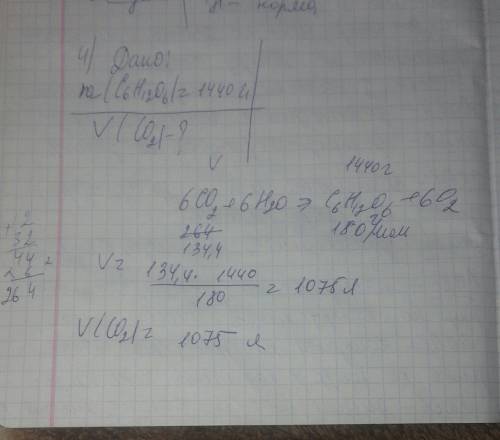 норма
4) Дано:
m(C6H12O6)=1440г
V(CO2)-?
V 1440г
6CO2+6H2O → C6H12O6+6O2
264 180г/моль
134,4
V= 134,4 · 1440 / 180 = 1075 л
V(CO2)= 1075 л
2
32
44
264